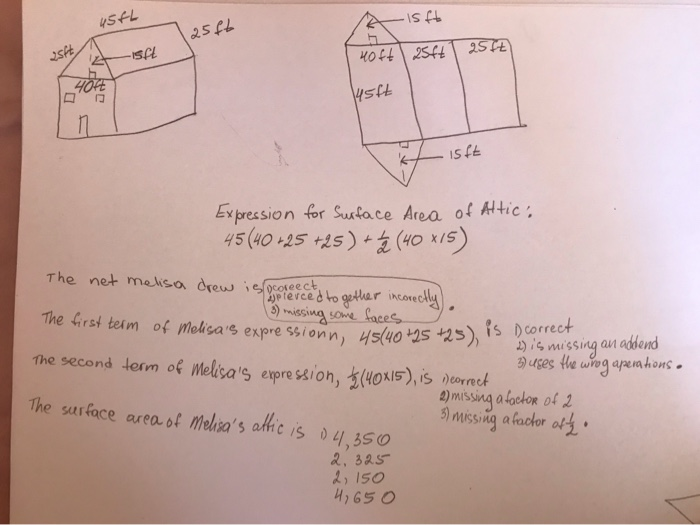 45ft
25ft
25ft
15ft
40ft
15 ft
40ft 25ft 25ft
45ft
15ft
Expression for Surface Area of Attic:
45(40+25+25)+½(40×15)
The net melisa drew is 1) coreect
2) pierced to gether incorectly
3) missing some faces.
The first term of Melisa's expressionn, 45(40+25+25), is 1) correct
2) is missing an addend
3) uses the wrog aperations.
The second term of Melisa's expression, ½(40×15), is 1) correct
2) missing a factor of 2
3) missing a factor of ½.
The surface area of Melisa's attic is 1) 4,350
2. 325
2, 150
4,650